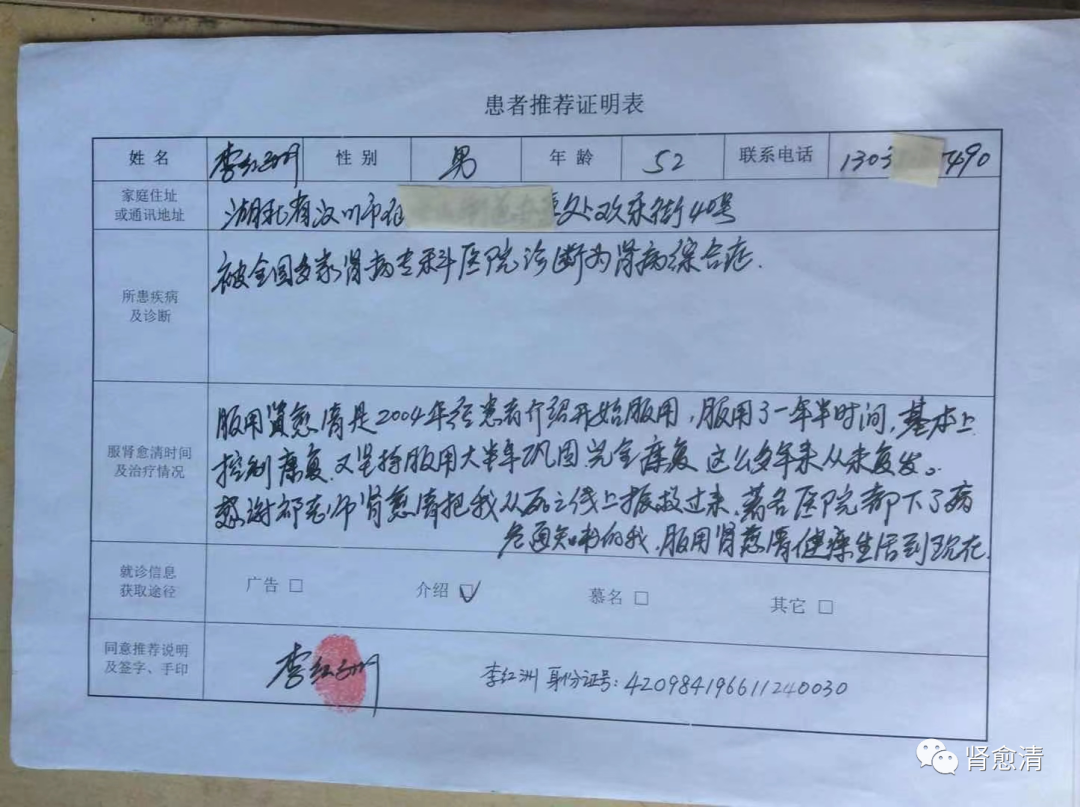 患者推荐证明表
姓 名 李红洲 性 别 男 年 龄 52 联系电话 1303 7490
家庭住址
或通讯地址
湖北省汉川市 处欢乐街40号
所患疾病
及诊断
被全国多家肾病专科医院诊断为肾病综合症.
服肾愈清时间
及治疗情况
服用肾愈清是2004年经患者介绍开始服用,服用了一年半时间,基本上
控制康复.又坚持服用大半年巩固.完全康复 这么多年来从未复发。
感谢邓老师肾愈清把我从死亡线上拯救过来、著名医院都下了病
危通知书的我.服用肾愈清健康生活到现在.
就诊信息
获取途径
广告 □ 介绍 ☑ 慕名 □ 其它 □
同意推荐说明
及签字、手印
李红洲 李红洲 身份证号:420984196611240030
肾愈清